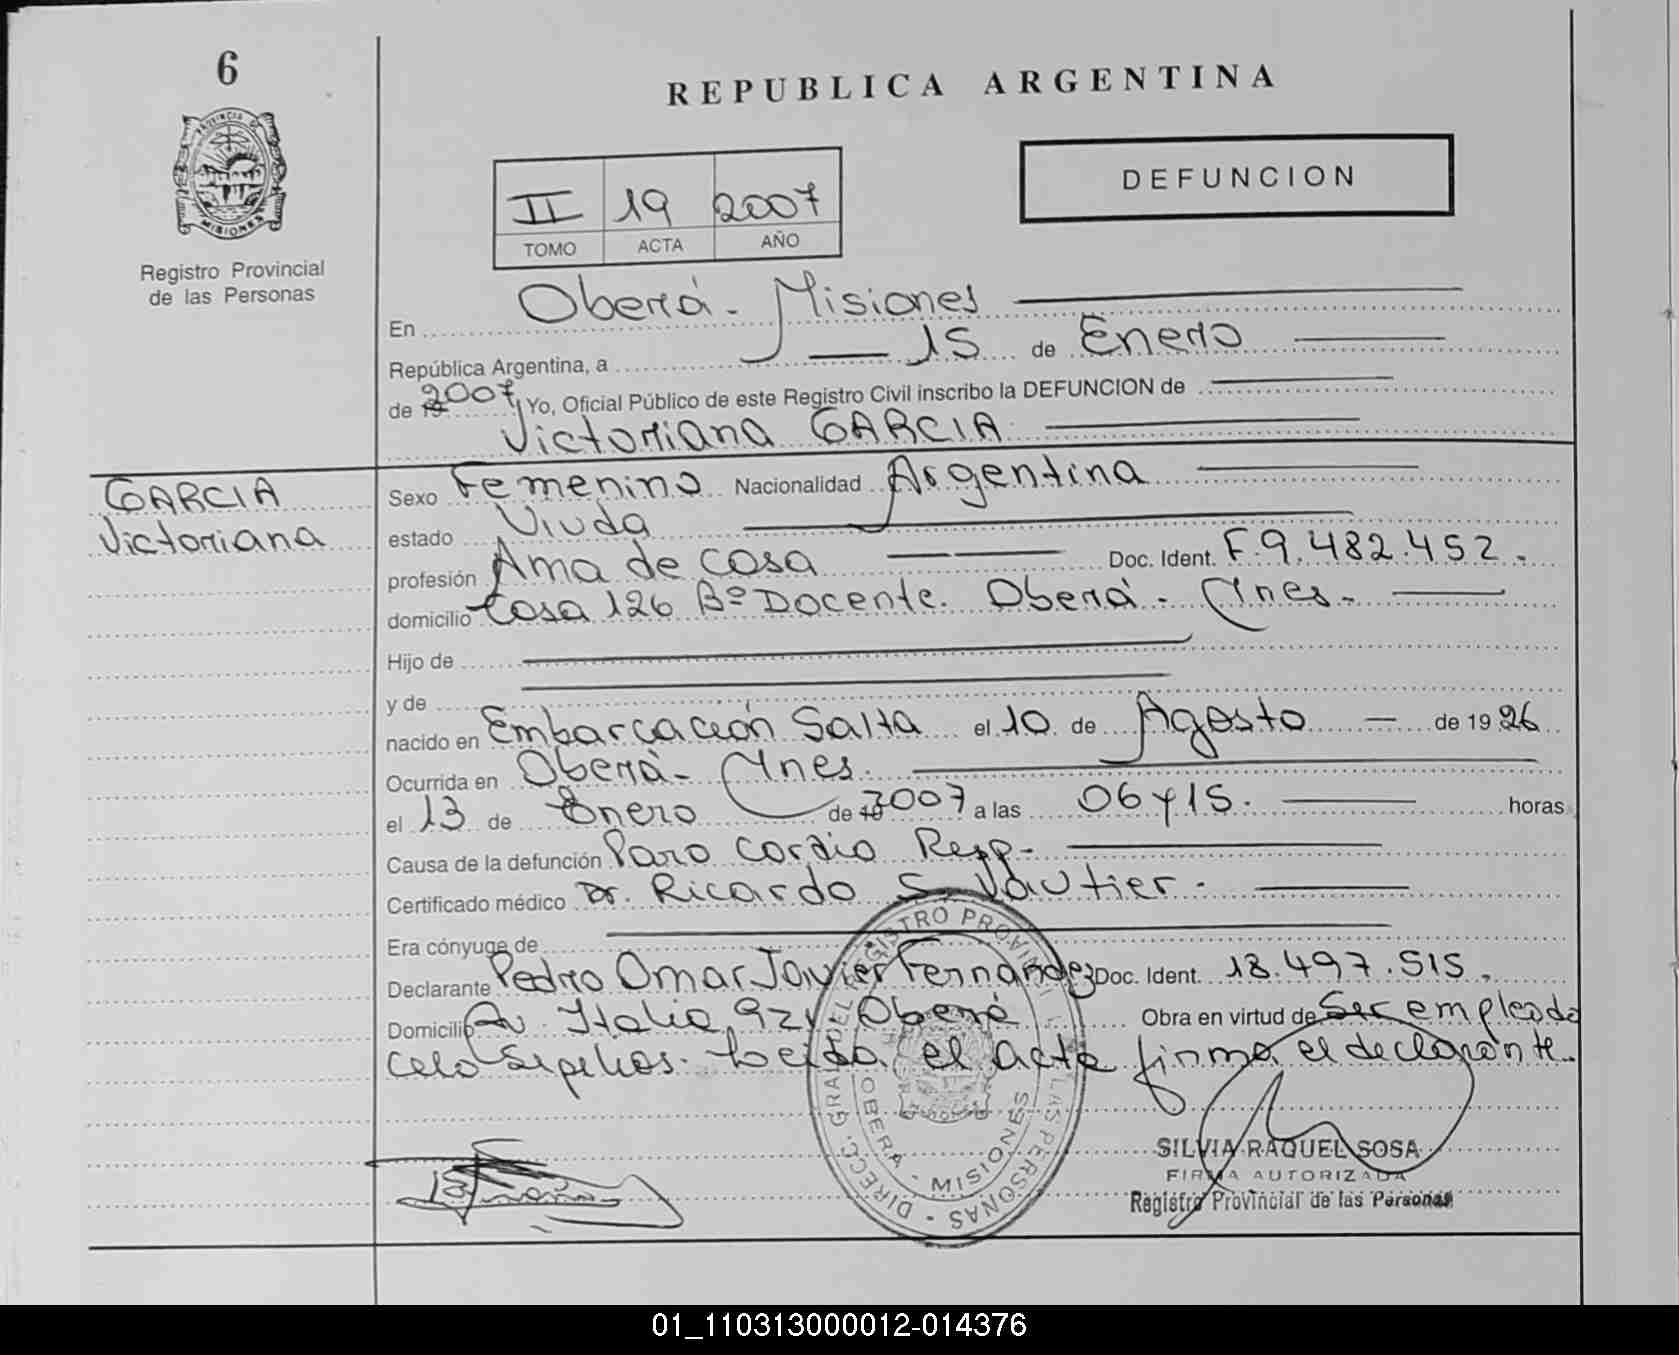 6
PROVINCIA DE
MISIONES
Registro Provincial
de las Personas
REPUBLICA ARGENTINA
DEFUNCION
II 19 2007
TOMO ACTA AÑO
En Oberá - Misiones
República Argentina, a 15 de Enero
de 19 2007, Yo, Oficial Público de este Registro Civil inscribo la DEFUNCION de
Victoriana GARCIA
GARCIA
Victoriana
Sexo Femenino Nacionalidad Argentina
estado Viuda
profesión Ama de casa Doc. Ident. F.9.482.452.
domicilio Casa 126 Bº Docente. Oberá - Mnes.
Hijo de
y de
nacido en Embarcación Salta el 10 de Agosto de 1926
Ocurrida en Oberá - Mnes.
el 13 de Enero de 19 2007 a las 06 y 15. horas
Causa de la defunción Paro Cardio Resp.
Certificado médico Dr. Ricardo S. Vautier.
Era cónyuge de
Declarante Pedro Omar Javier Fernández Doc. Ident. 18.497.515.
Domicilio Av. Italia 921. Oberá Obra en virtud de Ser empleado
Celo Sepelios. Leída el acta firma el declarante.
DIRECC. GRAL DEL REGISTRO PROVINCIAL DE LAS PERSONAS -
OBERA - MISIONES
SILVIA RAQUEL SOSA
FIRMA AUTORIZADA
Registro Provincial de las Personas
01_110313000012-014376